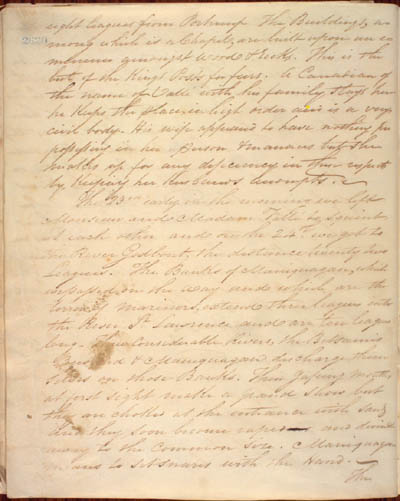 eight leagues from Portneuf. The Buildings, a=
mong which is a Chapel, are built upon an e=
minence amongst Wood & rocks. This is the
best of the King's Posts for furs. A Canadian of
the name of Vallé with his family stays here
he keeps the place in high order and is a very
civil body. His wife appeared to have nothing pre
possessing in her Person & manners but she
makes up for any deficiency in this respect
by keeping her Husband's accounts.
The 23rd early in the morning we left
Monsieur and Madam Vallé to squint
at each other and on the 24th we got to
the River Godbout, the distance twenty two
Leagues. The Banks of Maniquagan, which
we passed on the way and which are the
terror of mariners, extend three leagues into
the River St Lawrence and are ten leagues
long. Considerable Rivers, the Betsamis
& Maniquagan discharge them
selves on those Banks. Their gaping mouths
at first sight make a grand show but
they are choked at the entrance with sand
and they soon become rapid and
away to the Common Size. Maniquagan
means to
with the Hand.
The